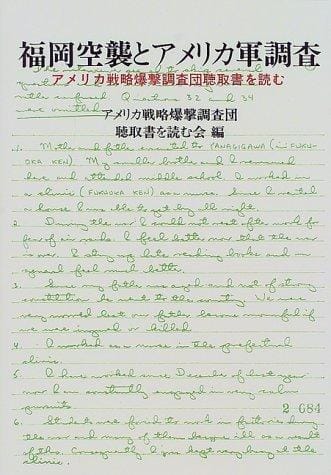 福岡空襲とアメリカ軍調査
アメリカ戦略爆撃調査団聴取書を読む
are omitted.
アメリカ戦略爆撃調査団
聴取書を読む会 編
1. Mother and father evacuated to YANAGIGAWA (in FUKU-
OKA KEN). My smaller brother and I remained
here and attended middle school. I worked in
a clinic (FUKUOKA KEN) as a nurse. Since I rented
a house I was able to get by all right.
2. During the war I could not rest after work for
fear of air raids. I feel better now that the war
is over. I stay up late reading books and in
general feel much better.
3. Since my father was aged and not of strong
constitution he went to the country. We were
very worried lest our father become mournful if
we were injured or killed.
4. I worked as a nurse in the prefectural
clinic.
5. I have worked since December of last year
now am constantly engaged in very calm
pursuits.
2 684
6. Students were forced to work in factories during
the war and many of them became ill as a result
of this. Consequently I was kept very busy at the
clinic.